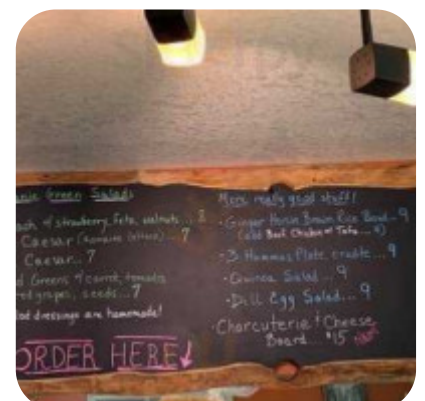 Green Salads
of strawberry, feta, walnuts... 8
Caesar (Romaine lettuce)... 7
Caesar.. 7
Greens w/ carrot, tomatoes
grapes, seeds... 7
dressings are homemade!
ORDER HERE
More really good stuff!
- Ginger Brown Rice Bowl... 9
(add Beef, Chicken or Tofu
- 3 Hummus Plate, crudite... 9
- Quinoa Salad... 9
- Dill Egg Salad... 9
- Charcuterie & Cheese
Board... $15